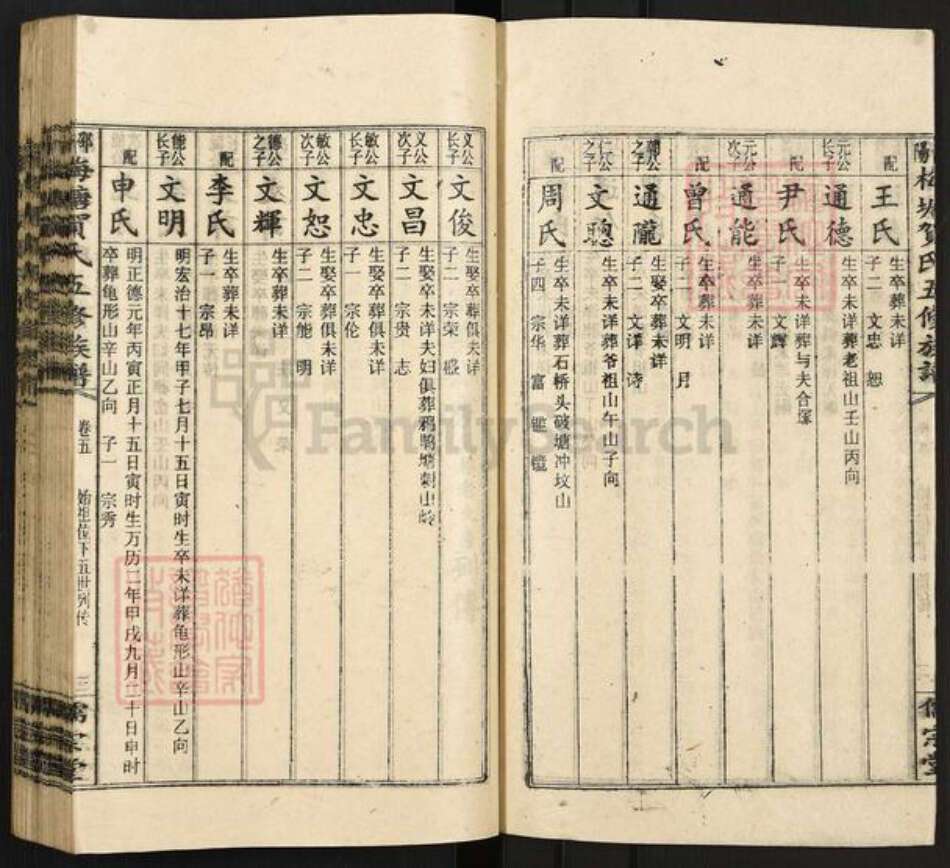 配
王氏
生卒葬未详
子二 文忠 恕
元公长子
通德
生卒未详葬老祖山壬山丙向
配
尹氏
生卒未详葬与夫合冢
子一 文輝
元公次子
通能
生卒葬未详
配
曾氏
生卒葬未详
子二 文明 月
之子
通隴
生娶卒葬未详
子二 文洋 诗
仁公之子
文聰
生卒未详葬爷祖山午山子向
配
周氏
生卒未详葬石桥头破塘冲坟山
子四 宗华 富
文公长子
文俊
生娶卒葬俱未详
子二 宗荣 盛
义公次子
文昌
生娶卒未详夫妇俱葬
子二 宗贵 志
敏公长子
文忠
生娶卒葬俱未详
子一 宗伦
敏公次子
文恕
生娶卒葬俱未详
子二 宗能 明
德公之子
文輝
生卒葬未详
配
李氏
生卒葬未详
子一 宗昂
能公长子
文明
明宏治十七年甲子七月十五日寅时生卒未详葬龟形山辛山乙向
配
申氏
明正德元年丙寅正月十五日寅时生万历二年甲戌九月二十日申时
卒葬龟形山辛山乙向 子一 宗秀
梅塘贺氏五修族谱
卷五
始祖位下五世列传
三
儒宗堂
FamilySearch